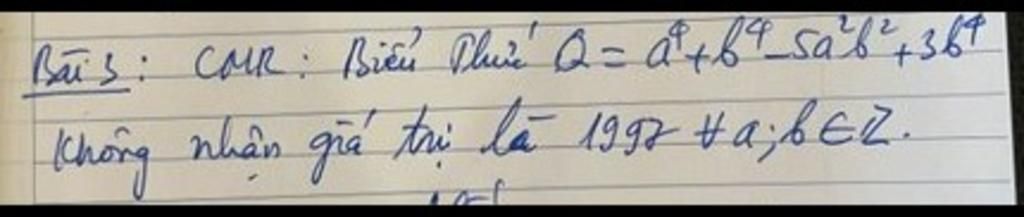 Bài 3: CMR: Biểu Thức Q = a⁴ + b⁴ - 5a²b² + 3b⁴
Không nhận giá trị là 1997 ∀ a; b ∈ Z.